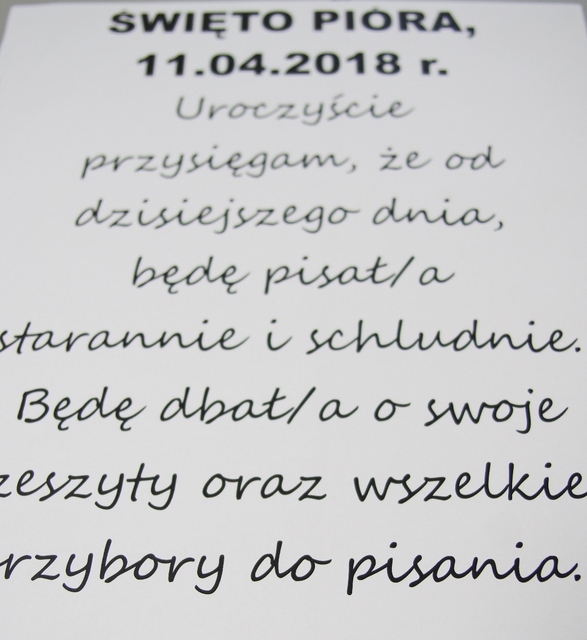 ŚWIĘTO PIÓRA,
11.04.2018 r.
Uroczyście
przysięgam, że od
dzisiejszego dnia,
będę pisał/a
starannie i schludnie.
Będę dbał/a o swoje
zeszyty oraz wszelkie
rzybory do pisania.